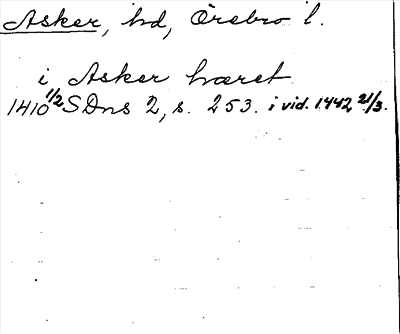 Asker, hd, Örebro l.
i Asker hæret
1410 1/2 SDns 2, s. 253. i vid. 1442 21/3.